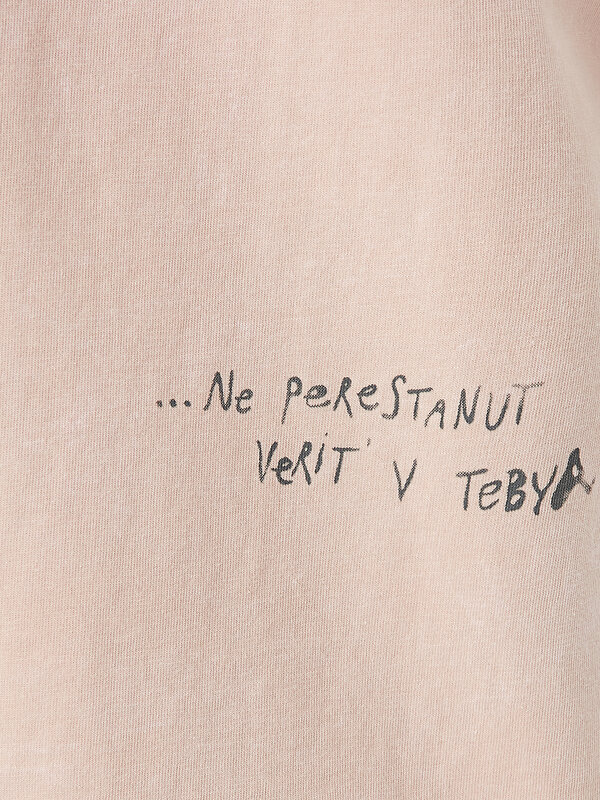 ...Ne PeReSTANUT
VeRiT' V TeBYA